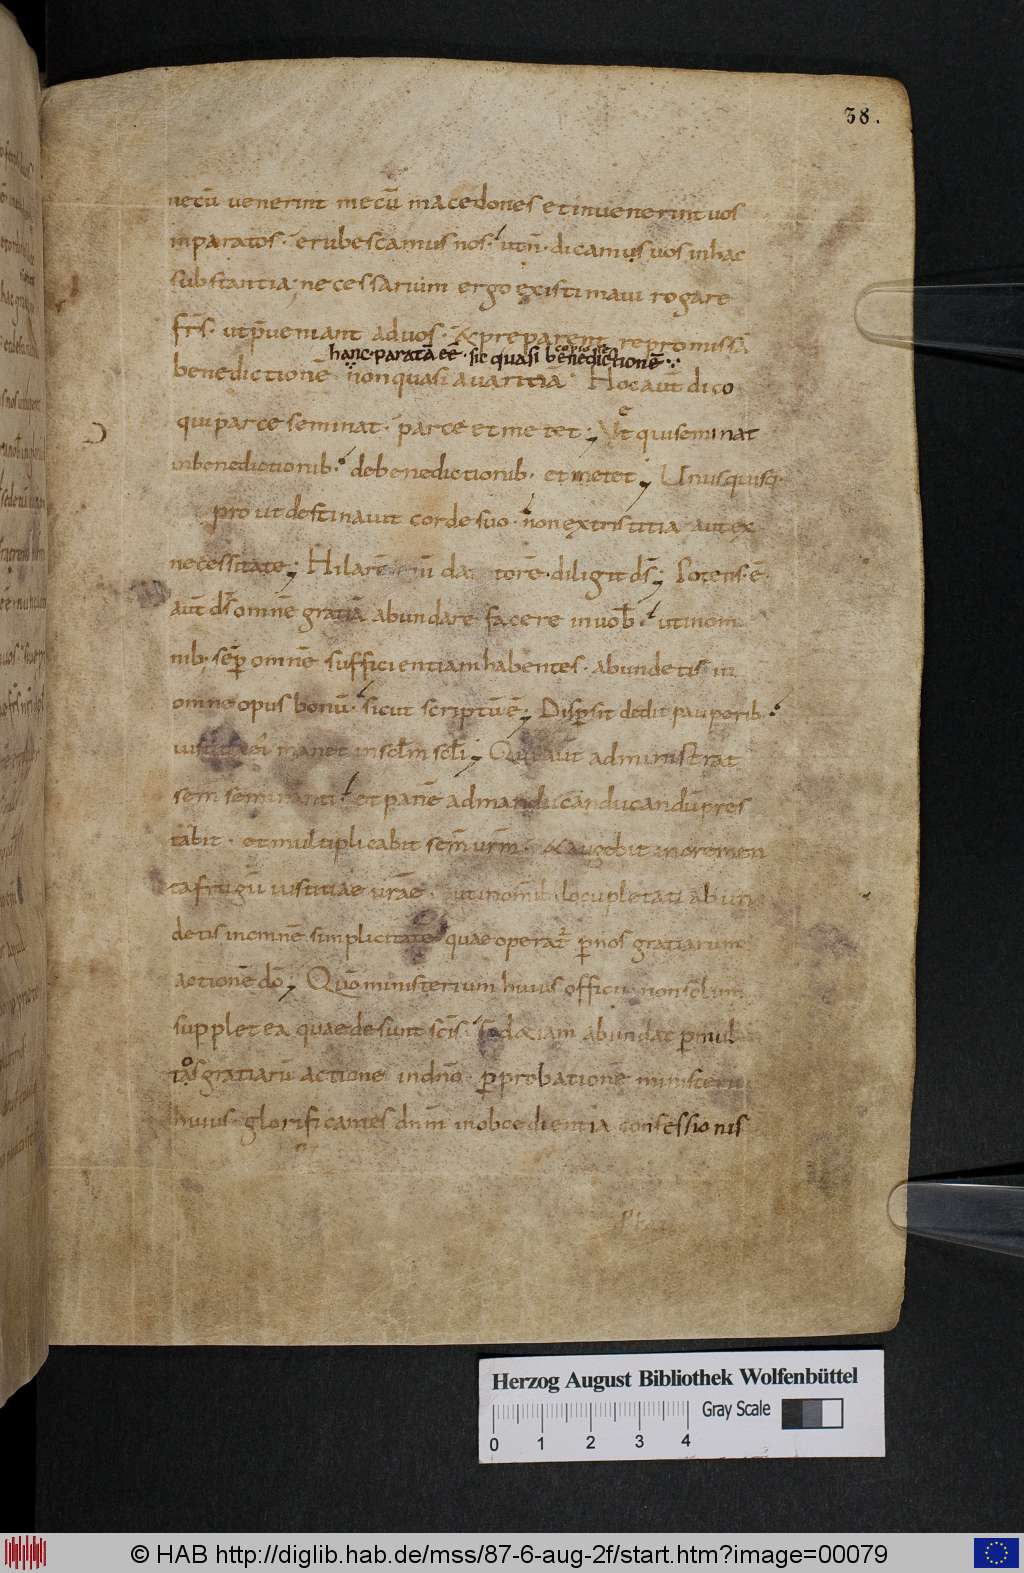 38.
necū venerint mecū macedones et invenerint vos
inparatos · erubescamus nos · utñ · dicamus vos in hac
substantia; necessarium ergo existimavi rogare
fr̄s · ut p̄veniant ad vos · & preparent repromissā
hanc · paratā eē · sic quasi benedictionē
benedictionē non quasi avaritiā · Hoc aut dico
qui parce seminat · parce et metet; Et qui seminat
in benedictionib· de benedictionib· et metet; Unusquisq·
prout destinavit corde suo · non ex tristitia aut ex
necessitate; Hilarē datorē · diligit ds̄; Potens · ē
aūt ds̄ omnē gratiā abundare facere in vob̄ · ut in om
nib· sēp omnē sufficientiam habentes · abundetis in
omne opus bonū · sicut scriptū ē; Dispersit dedit pauperib·
manet in sclm scli; Qui aūt administrat
semē seminanti · et panē ad manducanducandū pres
tabit · et multiplicabit semē vrm̄ · & augebit incremen
ta frugū iustitiae vrāe · ut in omnib· locupletati abun
detis in omnē simplicitatē quae operat̄ p̱ nos gratiarum
actionē dō; Qūo ministerium huius officii non solum
supplet ea quae desunt scīs · sed &iam abundat p̱ mul
tas gratiarū actione in dn̄o · p̱ probationē ministerii
huius · glorificantes dnm̄ in oboedientia confessionis
Herzog August Bibliothek Wolfenbüttel
Gray Scale
0 1 2 3 4
© HAB http://diglib.hab.de/mss/87-6-aug-2f/start.htm?image=00079